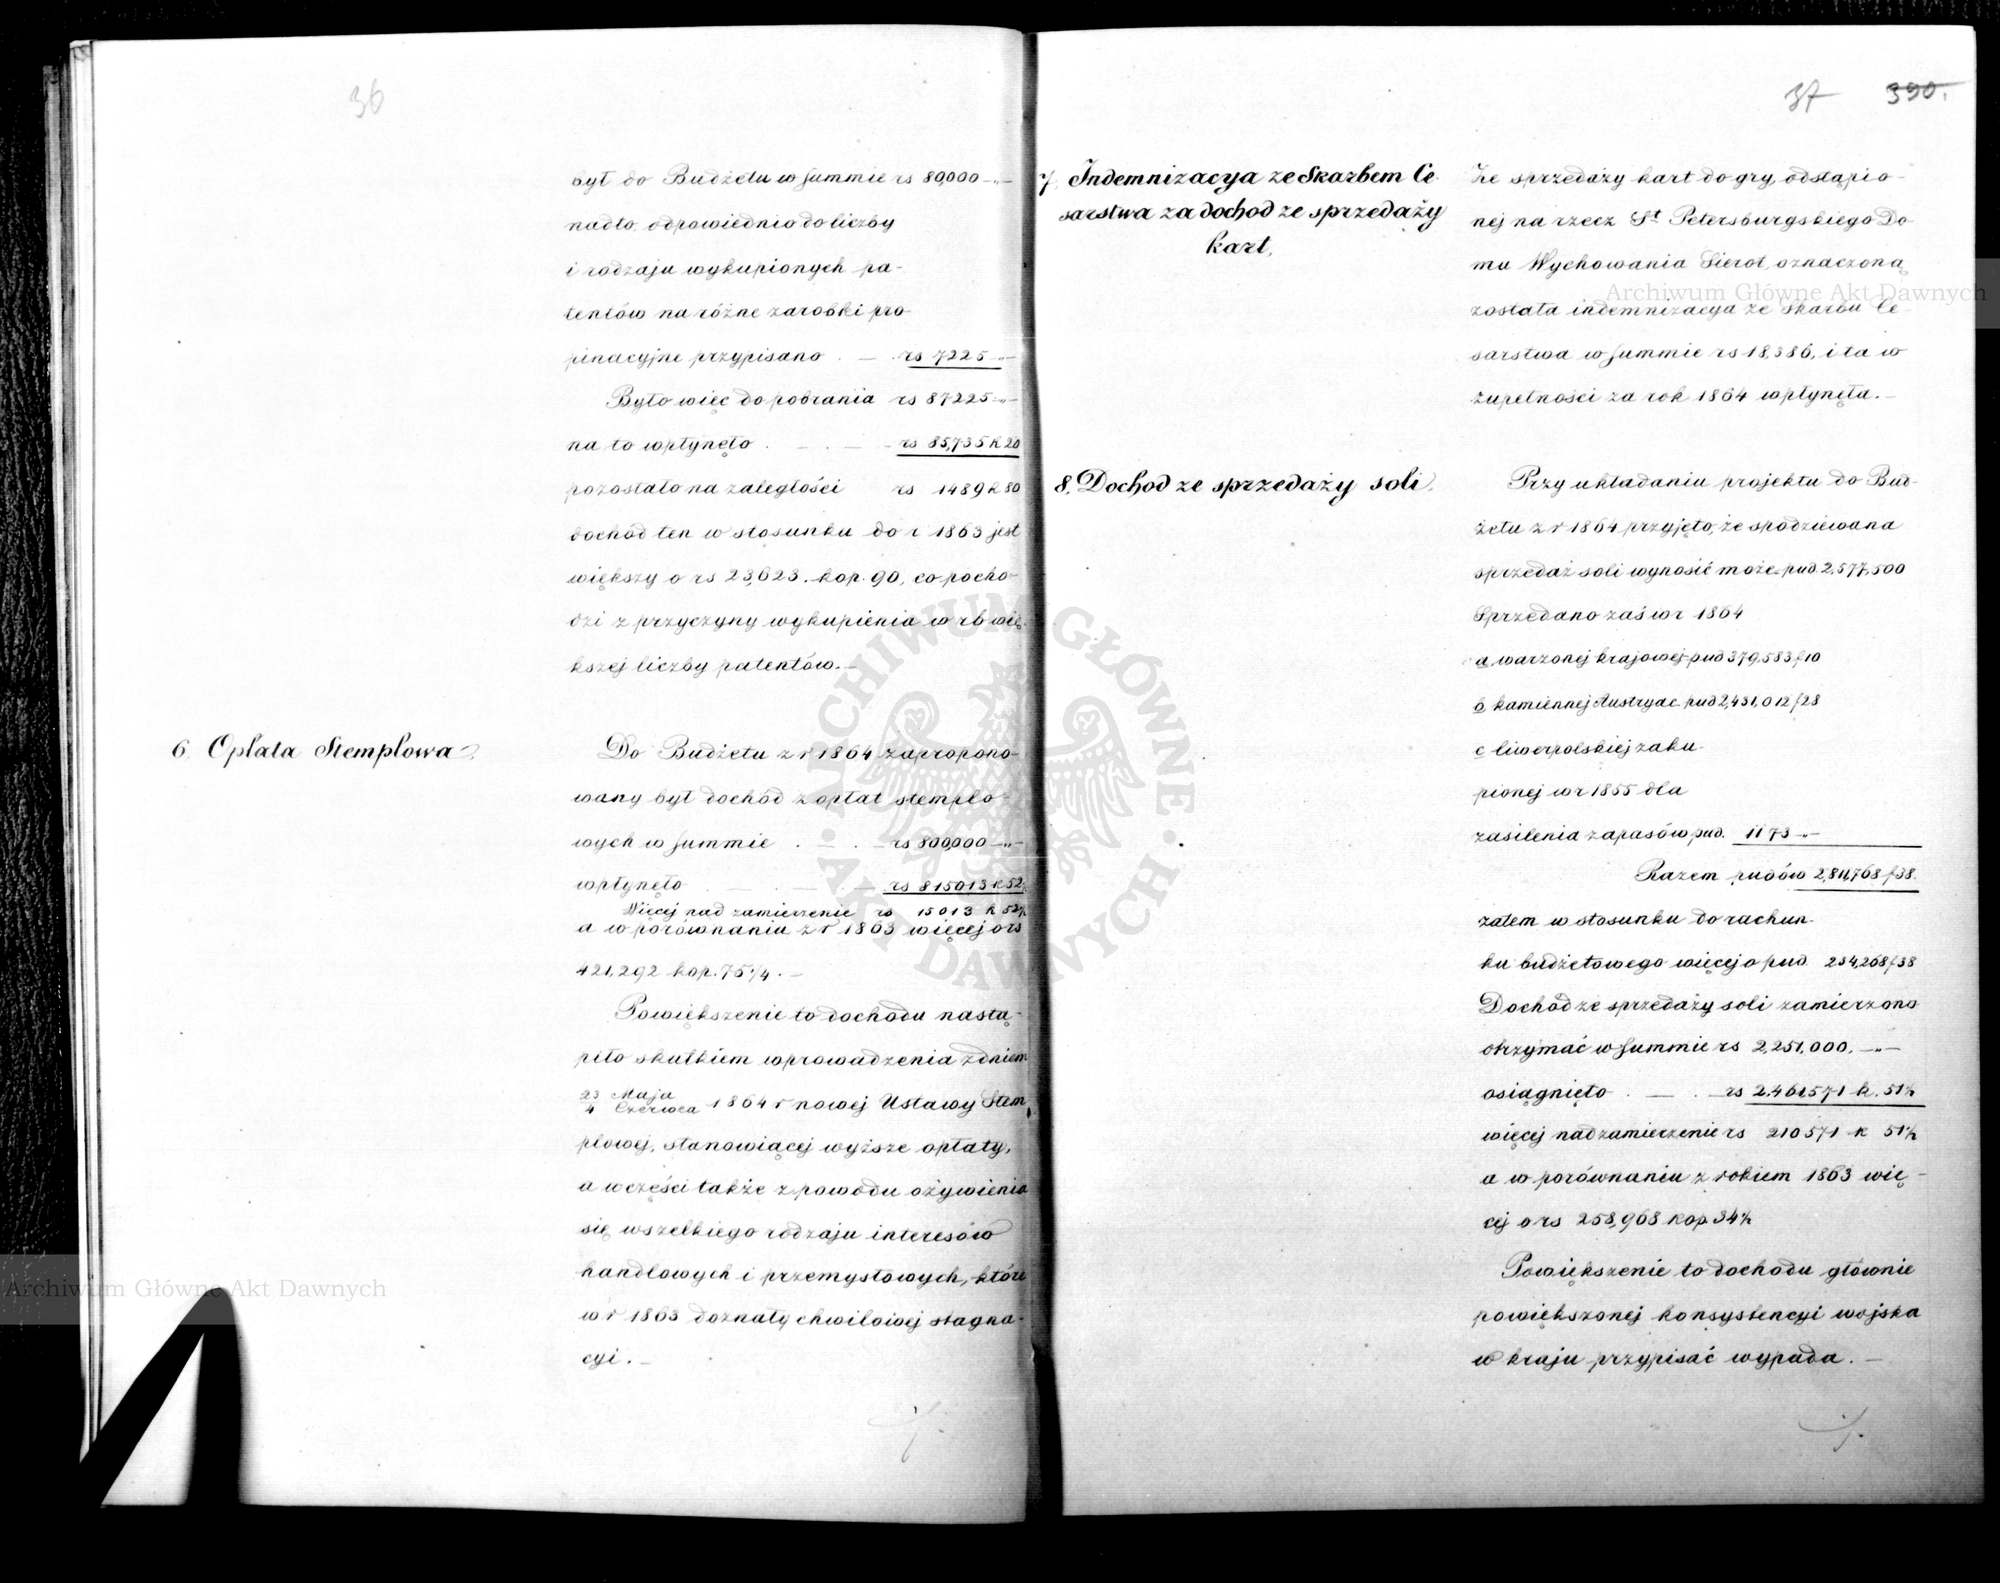 36
był do Budżetu w summie rs 80,000 —„—
nadto, odpowiednio do liczby
i rodzaju wykupionych pa-
tentów na różne zarobki pro-
pinacyjne przypisano . — . rs 7225 „—
Było więc do pobrania rs 87225 „—
na to wpłynęło . — . — rs 85,735 k 20
pozostało na zaległości rs 1489 k 80
dochód ten w stosunku do r 1863 jest
większy o rs 23,623. kop. 90, co pocho-
dzi z przyczyny wykupienia w r b wię-
kszej liczby patentów. —
6. Opłata Stemplowa
Do Budżetu z r 1864 zapropono-
wany był dochód z opłat stemplo-
wych w summie . — . — rs 800,000 —„—
wpłynęło . — . — . — rs 815013 k 52½
Więcej nad zamierzenie rs 15013 k 52½
a w porównaniu z r 1863 więcej o rs
421,292 kop. 75¼. —
Powiększenie to dochodu nastą-
piło skutkiem wprowadzenia z dniem
23 Maja
4 Czerwca 1864 r nowej Ustawy Stem-
plowej, stanowiącej wyższe opłaty,
a w części także z powodu ożywienia
się wszelkiego rodzaju interesów
handlowych i przemysłowych, które
w r 1863 doznały chwilowej stagna-
cyi. —
37 390.
7. Indemnizacya ze Skarbem Ce-
sarstwa za dochod ze sprzedaży
kart.
Ze sprzedaży kart do gry, odstąpio-
nej na rzecz St Petersburgskiego Do
mu Wychowania Sierot, oznaczoną
została indemnizacya ze Skarbu Ce-
sarstwa w summie rs 18,386, i ta w
zupełności za rok 1864 wpłynęła. —
8. Dochod ze sprzedaży soli.
Przy układaniu projektu do Bud-
żetu z r 1864 przyjęto, że spodziewana
sprzedaż soli wynosić może pud. 2,577,500
Sprzedano zaś w r 1864
a, warzonej krajowej pud 379,583 f 10
b, kamiennej Austryac. pud 2,431,012 f 28
c liwerpolskiej zaku-
pionej w r 1855 dla
zasilenia zapasów pud. 1173 „—
Razem pudów 2,811,768 f 38.
zatem w stosunku do rachun-
ku budżetowego więcej o pud. 234,268 f 38
Dochód ze sprzedaży soli zamierzono
otrzymać w summie rs 2,251,000. —„—
osiągnięto . — . — rs 2,461,571 k. 51½
więcej nad zamierzenie rs 210571 k 51½
a w porównaniu z rokiem 1863 wię-
cej o rs 258,968 kop 34½
Powiększenie to dochodu głównie
powiększonej konsystencyi wojska
w kraju przypisać wypada. —
ARCHIWUM GŁÓWNE
AKT DAWNYCH
Archiwum Główne Akt Dawnych
Archiwum Główne Akt Dawnych